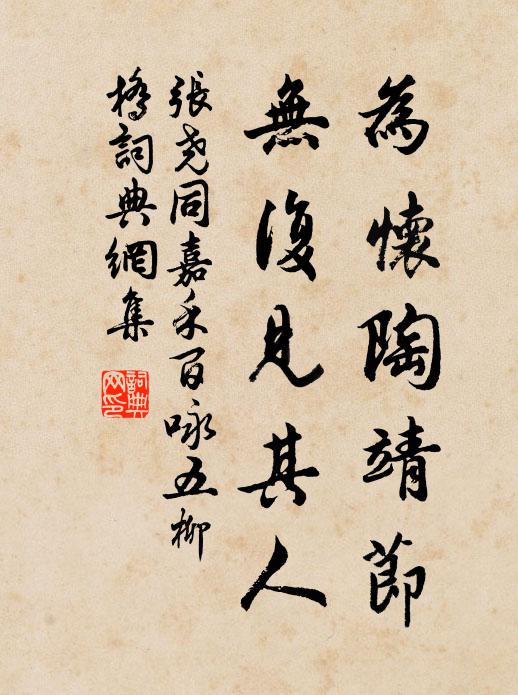 為懷陶靖節
無復見其人
張堯同嘉禾百咏五柳
橋詞典網集
詞典
网印